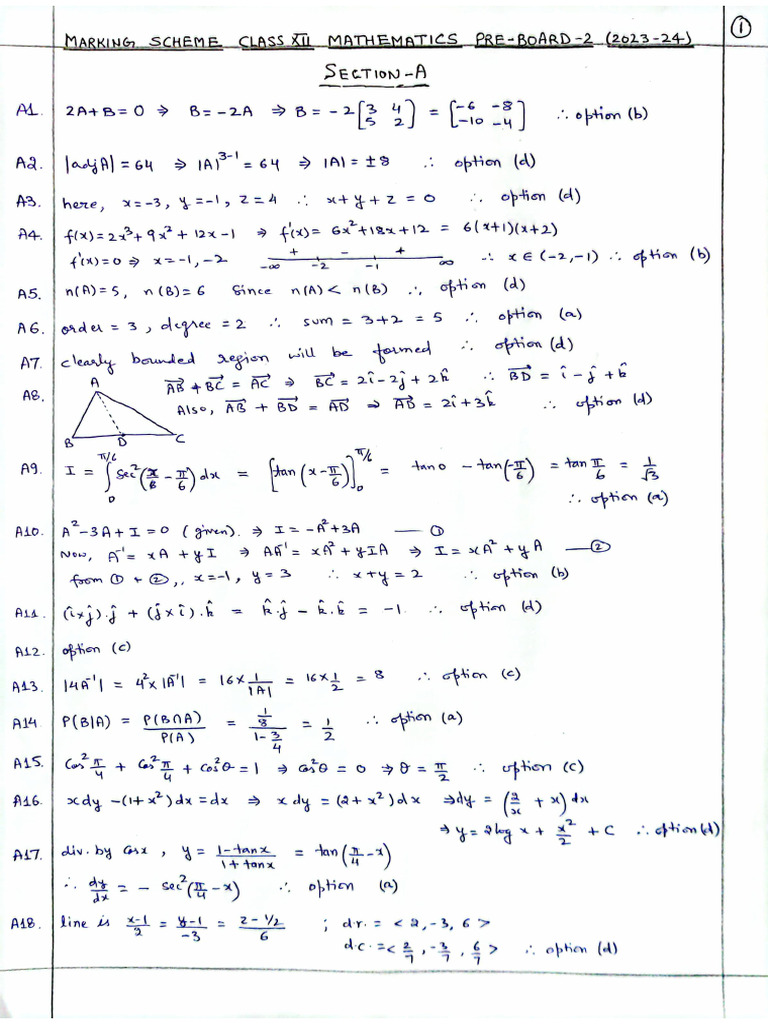 ①
MARKING SCHEME CLASS XII MATHEMATICS PRE-BOARD-2 (2023-24)
SECTION-A
A1. 2A+B=0 ⇒ B=-2A ⇒ B=-2[3 4; 5 2] = [-6 -8; -10 -4] ∴ option (b)
A2. |adjA|=64 ⇒ |A|³⁻¹=64 ⇒ |A|=±8 ∴ option (d)
A3. here, x=-3, y=-1, z=4 ∴ x+y+z=0 ∴ option (d)
A4. f(x)=2x³+9x²+12x-1 ⇒ f'(x)=6x²+18x+12 = 6(x+1)(x+2)
f'(x)=0 ⇒ x=-1,-2 -∞ + -2 - -1 + ∞ ∴ x∈(-2,-1) ∴ option (b)
A5. n(A)=5, n(B)=6 Since n(A)<n(B) ∴ option (d)
A6. order=3, degree=2 ∴ sum=3+2=5 ∴ option (a)
A7. clearly bounded region will be formed ∴ option (d)
A8. A B D C AB→ + BC→ = AC→ ⇒ BC→ = 2î-2ĵ+2k̂ ∴ BD→ = î-ĵ+k̂
Also, AB→ + BD→ = AD→ ⇒ AD→ = 2î+3k̂ ∴ option (d)
A9. I = ∫₀^(π/6) sec²(x/6 - π/6)dx = [tan(x-π/6)]₀^(π/6) = tan0 - tan(-π/6) = tan π/6 = 1/√3
∴ option (a)
A10. A²-3A+I=0 (given). ⇒ I=-A²+3A — ①
Now, A⁻¹=xA+yI ⇒ AA⁻¹=xA²+yIA ⇒ I=xA²+yA — ②
from ① + ②, x=-1, y=3 ∴ x+y=2 ∴ option (b)
A11. (î×ĵ).ĵ + (ĵ×î).k̂ = k̂.ĵ - k̂.k̂ = -1. ∴ option (d)
A12. option (c)
A13. |4A⁻¹| = 4²×|A⁻¹| = 16×1/|A| = 16×1/2 = 8 ∴ option (c)
A14. P(B|A) = P(B∩A)/P(A) = (1/8)/(1-3/4) = 1/2 ∴ option (a)
A15. cos²π/4 + cos²π/4 + cos²θ=1 ⇒ cos²θ=0 ⇒ θ=π/2 ∴ option (c)
A16. xdy-(1+x²)dx=dx ⇒ xdy=(2+x²)dx ⇒ dy=(2/x + x)dx
⇒ y=2log x + x²/2 + C ∴ option (d)
A17. div. by cosx, y = (1-tanx)/(1+tanx) = tan(π/4-x)
∴ dy/dx = -sec²(π/4-x) ∴ option (a)
A18. line is (x-1)/2 = (y-1)/-3 = (z-1/2)/6 ; d.r. = <2,-3,6>
d.c. = <2/7, -3/7, 6/7> ∴ option (d)